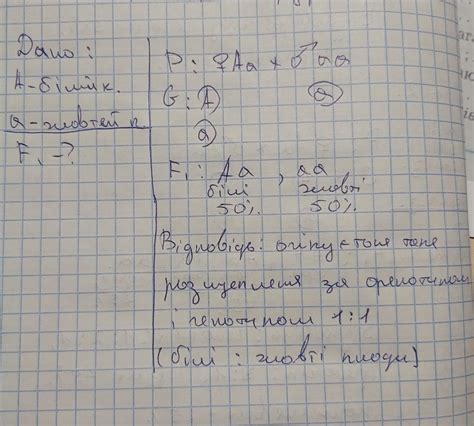 Дано:
А-білий к.
а-жовтей к.
F₁ -?
P: ♀Aa × ♂ aa
G: A a
a
F₁: Aa , aa
білі жовті
50%. 50%.
Відповідь: очікується таке
розщеплення за фенотипом
і генотипом 1:1
(білі : жовті плоди)